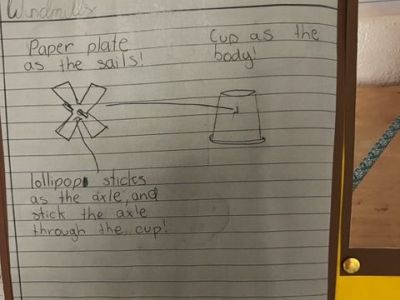 Windmills
Paper plate
as the sails!
Cup as the
body!
lollipop sticks
as the axle, and
stick the axle
through the cup!